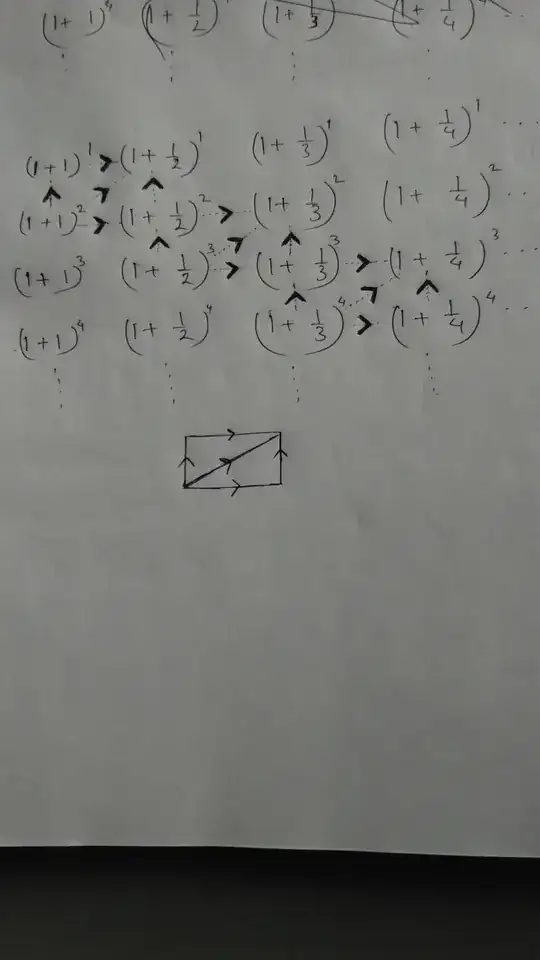 (1+ 1)^4 (1+ 1/2) (1+ 1/3) (1+ 1/4)^4
⋮ ⋮ ⋮ ⋮
(1+1)^1 > (1+ 1/2)^1 (1+ 1/3)^1 (1+ 1/4)^1 ...
(1+1)^2 > (1+ 1/2)^2 > (1+ 1/3)^2 (1+ 1/4)^2 ...
(1+ 1)^3 (1+ 1/2)^3 > (1+ 1/3)^3 > (1+ 1/4)^3 ...
(1+1)^4 (1+ 1/2)^4 (1+ 1/3)^4 > (1+ 1/4)^4 ...
⋮ ⋮ ⋮ ⋮